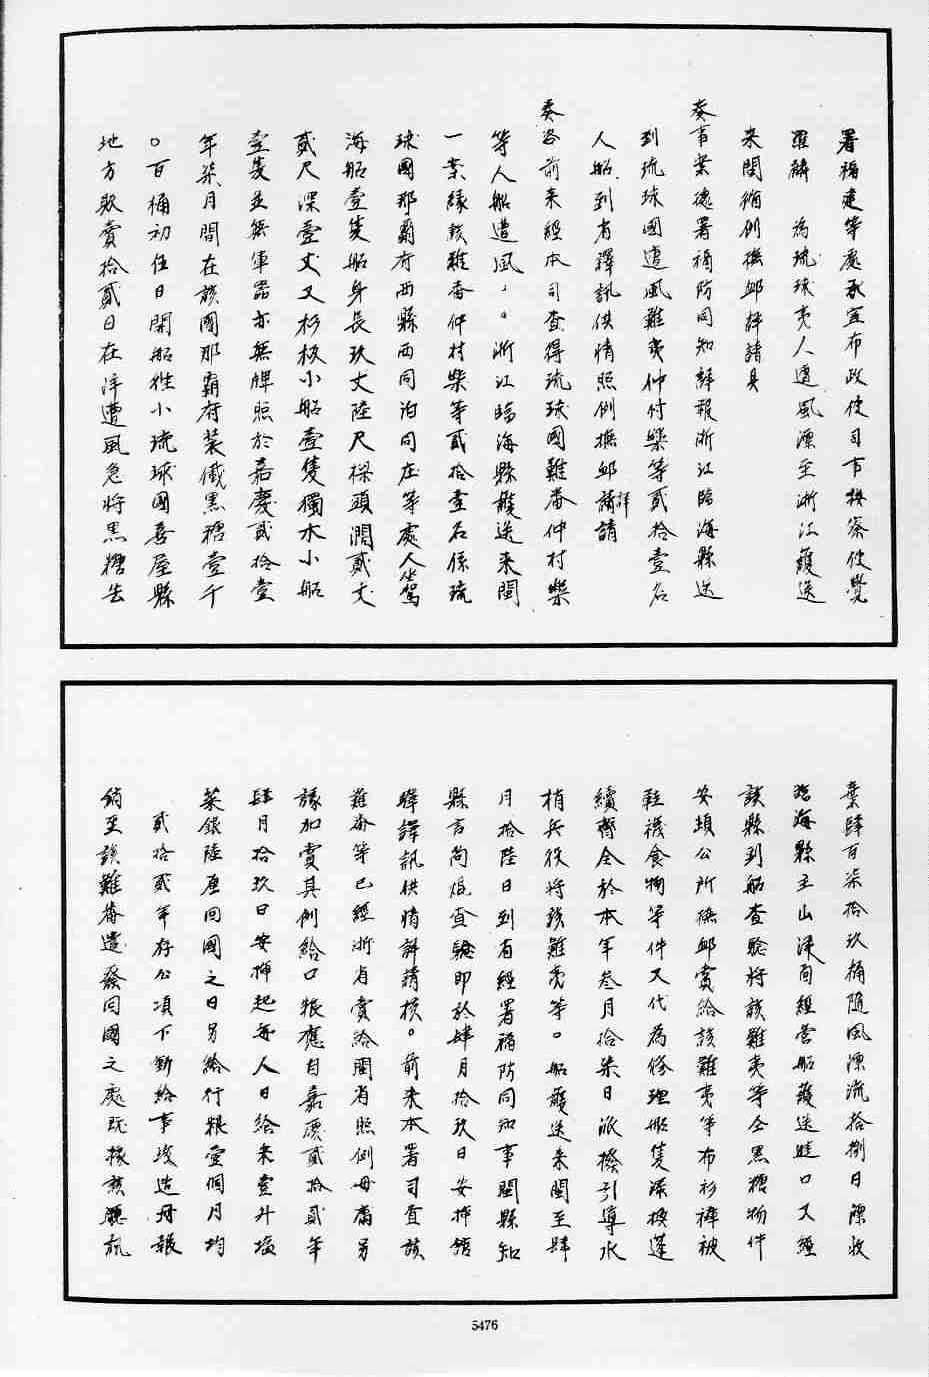 署福建等處承宣布政使司事按察使覺
羅麟　為琉球夷人遭風漂至浙江護送
來閩循例撫卹詳請具
奏事案德署福防同知詳報浙江臨海縣送
到琉球國遭風難夷仲村渠等貳拾壹名
人船到省譯訊供情照例撫卹詳請
奏咨前來經本司查得琉球國難番仲村渠
等人船遭風，。浙江臨海縣護送來閩
一案緣該難番仲村渠等貳拾壹名係琉
球國那霸府西縣西同泊同在等處人坐駕
海船壹隻船身長玖丈陸尺樑頭濶貳丈
貳尺深壹丈又杉板小船壹隻獨木小船
壹隻並無軍器亦無牌照於嘉慶貳拾壹
年柒月間在該國那霸府裝儎黑糖壹千
。百桶初伍日開船往小琉球國喜屋縣
地方販賣拾貳日在洋遭風急將黑糖丟
棄肆百柒拾玖桶隨風漂流拾捌日漂收
臨海縣主山澳甫經營船護送進口又經
該縣到船查驗將該難夷等仝黑糖物件
安頓公所撫卹賞給該難夷等布衫褲被
鞋襪食物等件又代為修理船隻添換蓬
續齊全於本年叁月拾柒日派撥引導水
梢兵役將該難夷等。船護送來閩至肆
月拾陸日到省經署福防同知事閩縣知
縣言尚焜查驗即於肆月拾玖日安插館
驛譯訊供情詳請核。前來本署司查該
難番等已經浙省賞給閩省照例毋庸另
議加賞其例給口糧應自嘉慶貳拾貳年
肆月拾玖日安插起每人日給米壹升塩
菜銀陸厘回國之日另給行糧壹個月均
貳拾貳年存公項下動給事竣造冊報
銷至該難番遣發回國之處既據該廳訊
5476